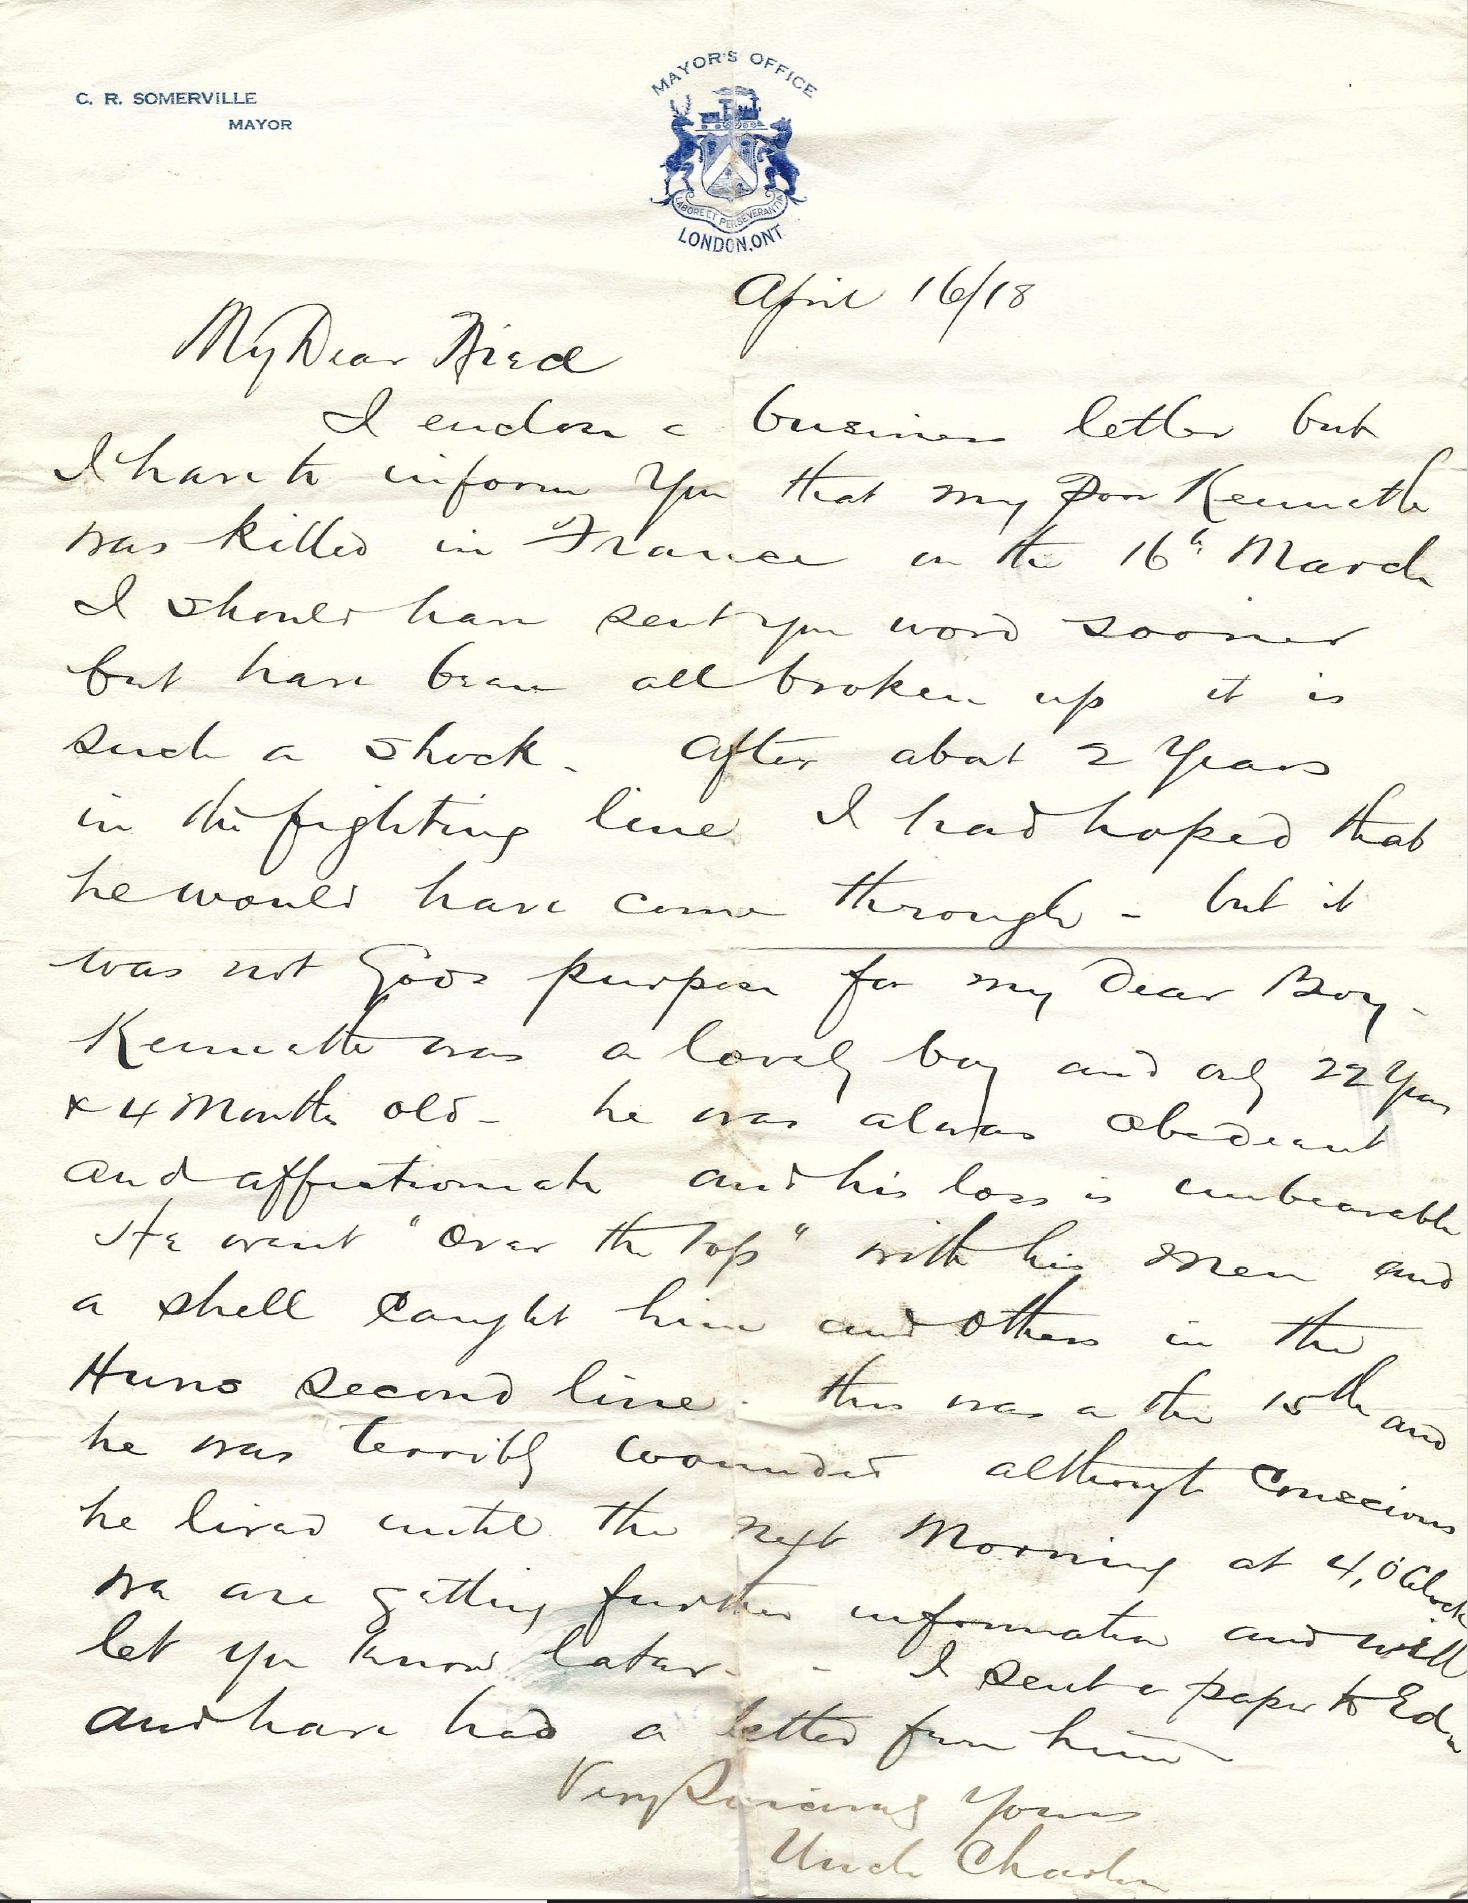 C. R. SOMERVILLE
MAYOR
MAYOR'S OFFICE
LABORE ET PERSEVERANTIA
LONDON, ONT.
April 16/18
My Dear
I enclose a business letter but
I have to inform you that my Son Kenneth
was killed in France on the 16th March
I should have sent you word sooner
but have been all broken up it is
such a shock. After about 2 Years
in the fighting line I had hoped that
he would have come through - but it
was not Gods purpose for my Dear Boy -
Kenneth was a lovely boy and only 22 Years
& 4 Months old - he was always obedeant
and affectionate and his loss is unbearable
He went "over the Top" with his Men and
a shell caught him and others in the
Huns second line. this was on the 15th and
he was terribly wounded although Conscious
he lived until the next Morning at 4, O Clock
we are getting further information and will
let you know later - - I sent a paper to
and have had a letter from him -
Very Sincerely Yours
Uncle Charles